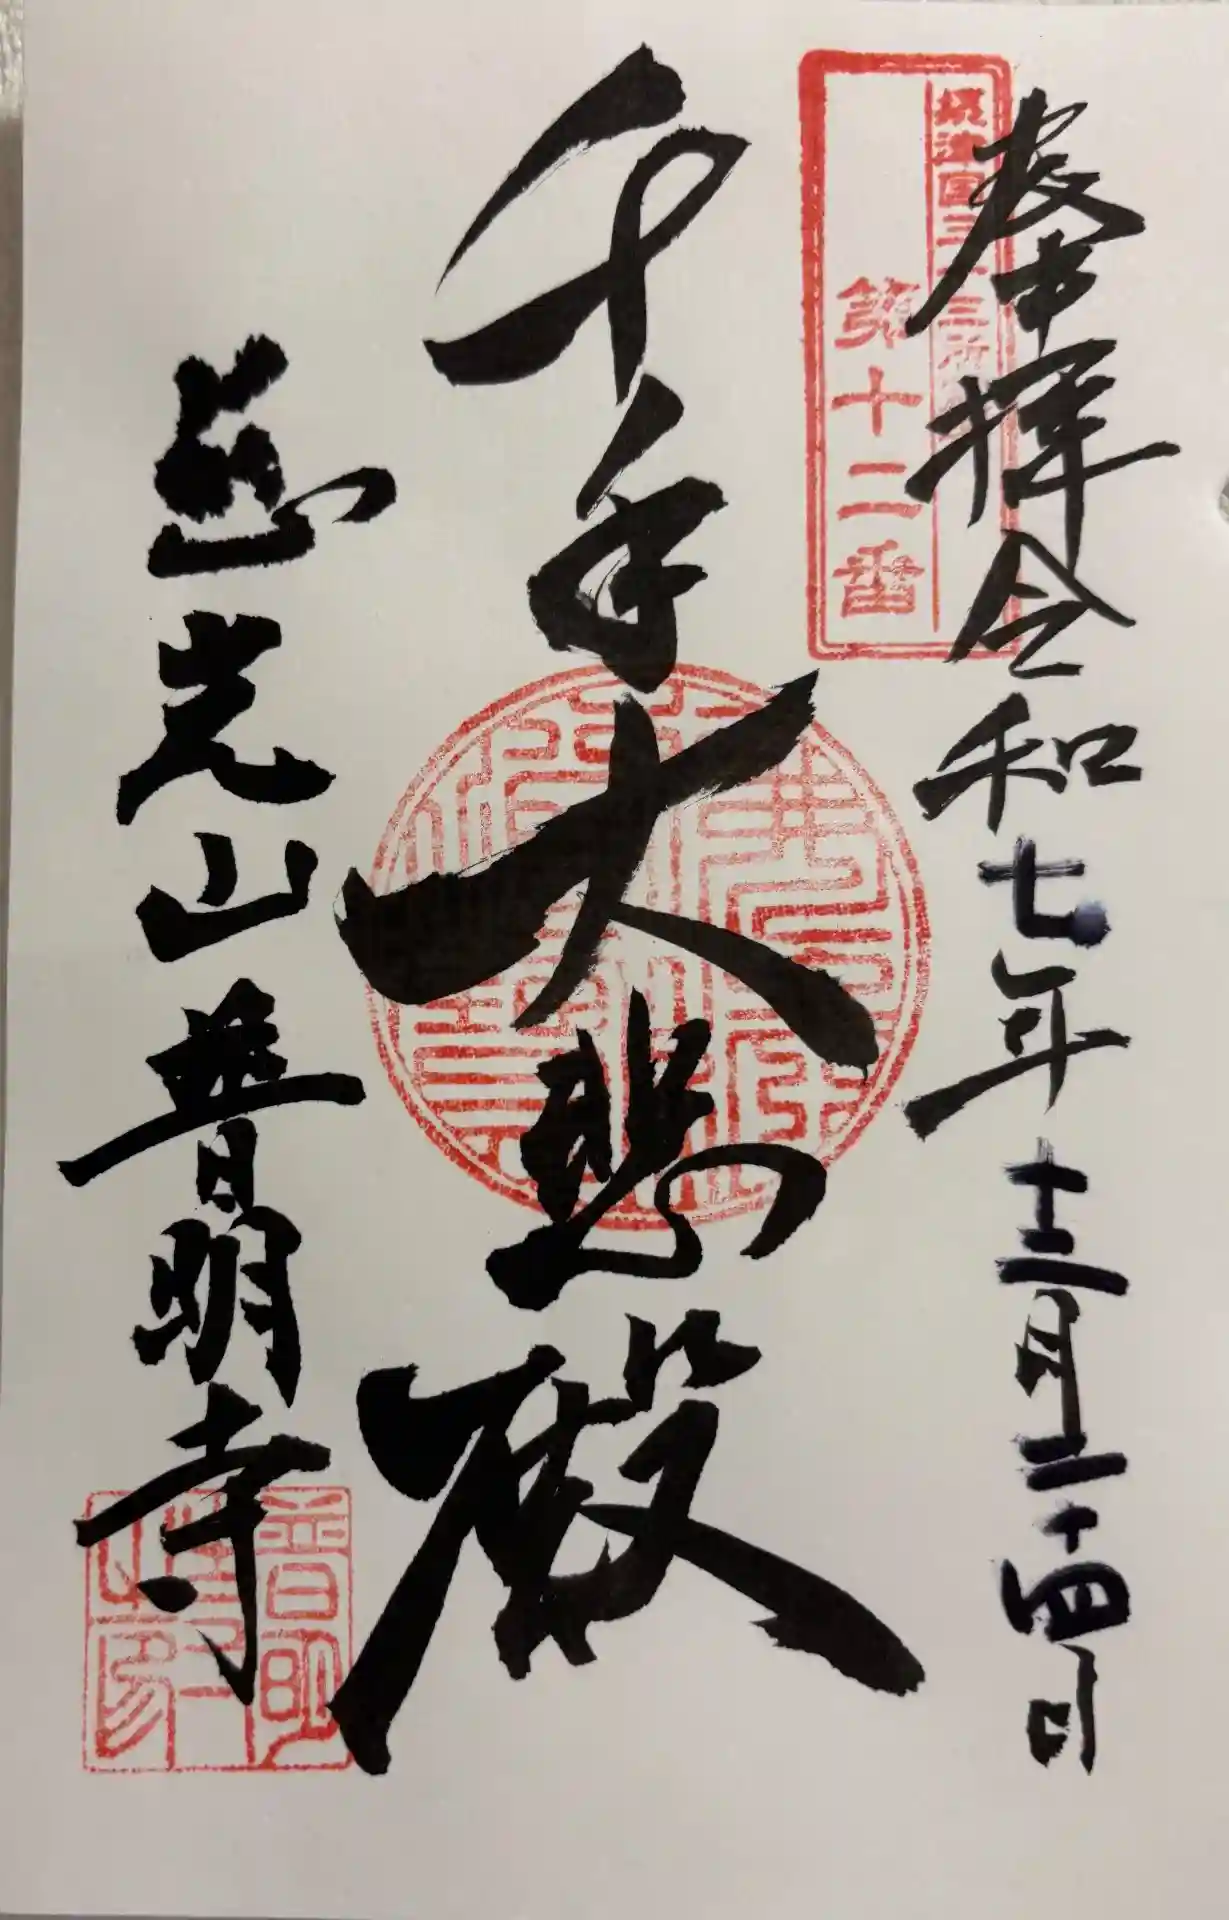 奉拝 令和七年十二月二十四日
摂津国三十三所
第十二番
千手大悲殿
慈光山普明寺